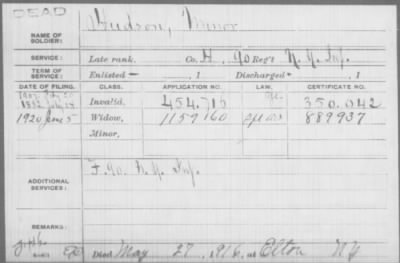 DEAD
NAME OF SOLDIER: Hudson, Minor
SERVICE: Late rank, Co. H, 90 Reg't N.Y. Inf.
TERM OF SERVICE: Enlisted , 1 Discharged , 1
DATE OF FILING. CLASS. APPLICATION NO. LAW. CERTIFICATE NO.
1882 July Invalid, 454.715 350.042
1920 June 5 Widow, 1159160 889937
Minor,
ADDITIONAL SERVICES: F. 90 N.Y. Inf.
REMARKS:
Died May 27, 1916, at Elton N Y